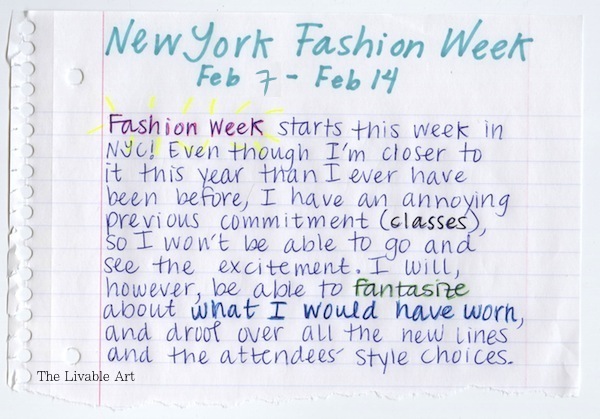 New York Fashion Week
Feb 7 - Feb 14
Fashion Week starts this week in
NYC! Even though I'm closer to
it this year than I ever have
been before, I have an annoying
previous commitment (classes),
so I won't be able to go and
see the excitement. I will,
however, be able to fantasize
about what I would have worn,
and drool over all the new lines
and the attendees' style choices.
The Livable Art